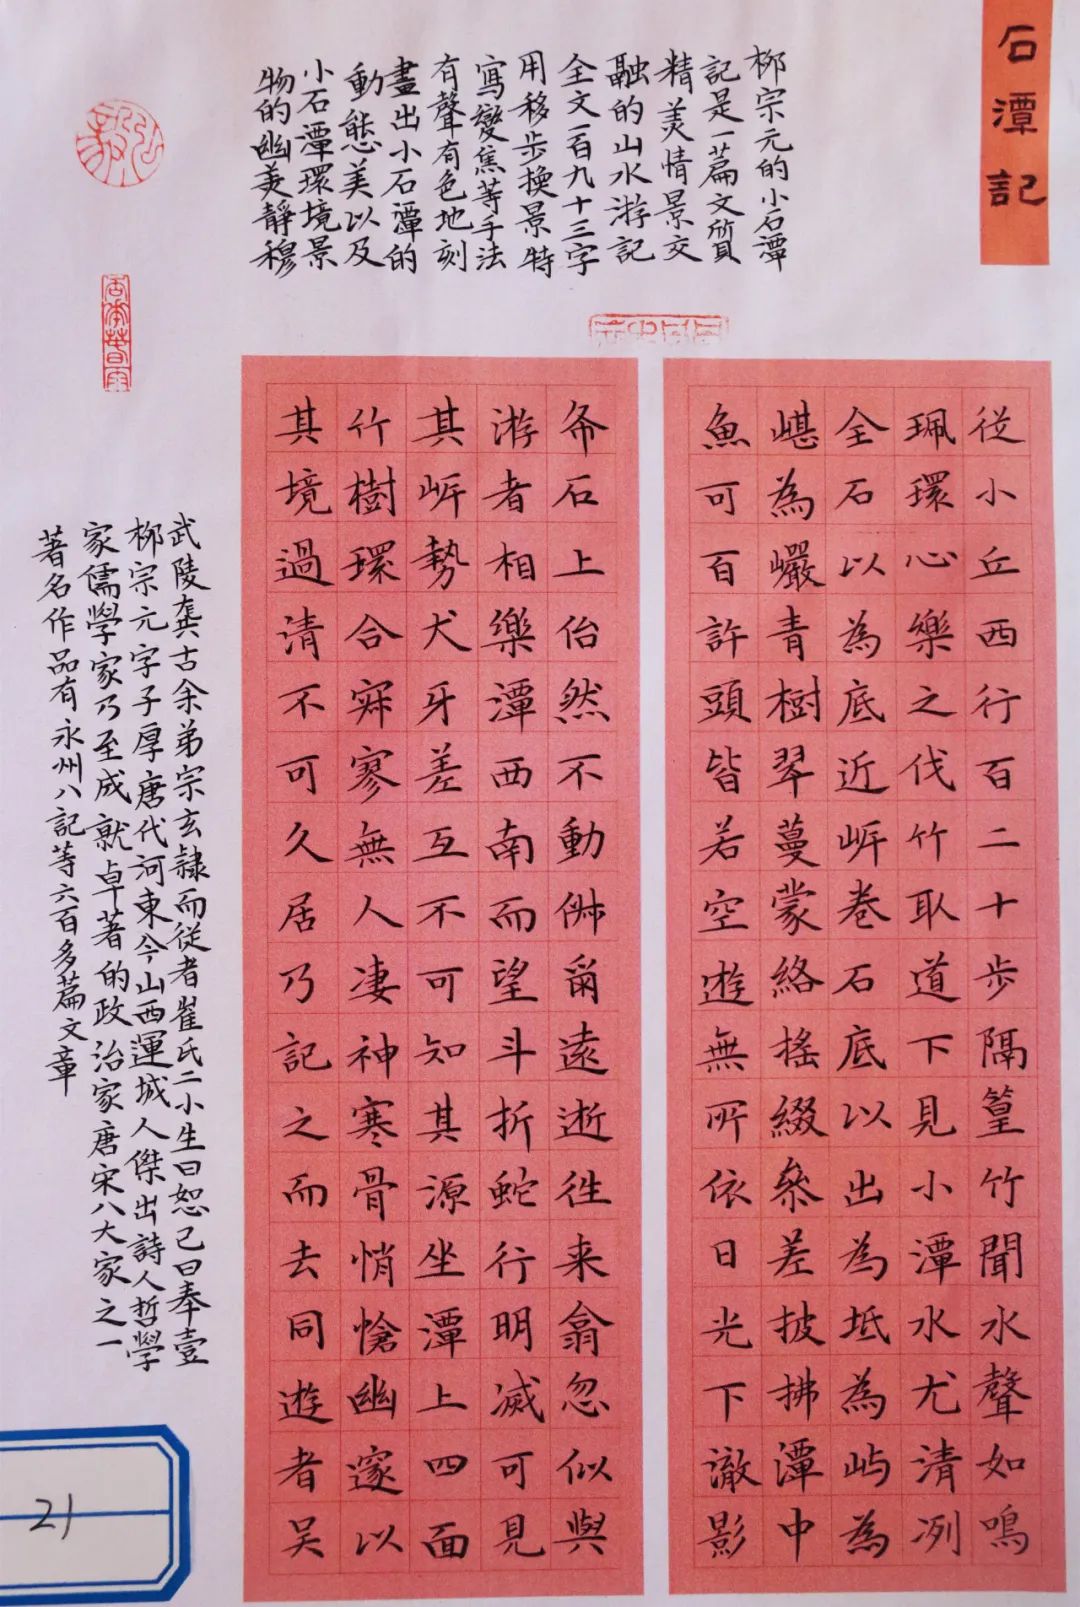 石潭記
柳宗元的小石潭
記是一篇文質
精美情景交
融的山水游記
全文一百九十三字
用移步換景特
寫變焦等手法
有聲有色地刻
畫出小石潭的
動態美以及
小石潭環境景
物的幽美靜穆
從小丘西行百二十步隔篁竹聞水聲如鳴
珮環心樂之伐竹取道下見小潭水尤清冽
全石以為底近岸卷石底以出為坻為屿為
嵁為巖青樹翠蔓蒙絡搖綴參差披拂潭中
魚可百許頭皆若空遊無所依日光下澈影
布石上佁然不動俶爾遠逝往来翕忽似與
游者相樂潭西南而望斗折蛇行明滅可見
其岸勢犬牙差互不可知其源坐潭上四面
竹樹環合寂寥無人凄神寒骨悄愴幽邃以
其境過清不可久居乃記之而去同遊者吴
武陵龔古余弟宗玄隸而從者崔氏二小生曰恕己曰奉壹
柳宗元字子厚唐代河東今山西運城人傑出詩人哲學
家儒學家乃至成就卓著的政治家唐宋八大家之一
著名作品有永州八記等六百多篇文章
21